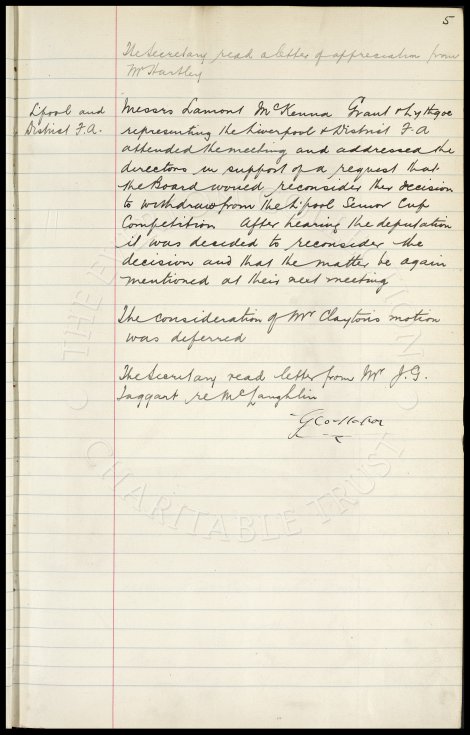 5
The Secretary read a letter of appreciation from
Mr Hartley
L'pool and
District F.A.
Messrs Lamont McKenna Grant & Lythgoe
representing the Liverpool & District F A
attended the meeting and addressed the
directors in support of a request that
the Board would reconsider their decision
to withdraw from the L'pool Senior Cup
Competition After hearing the deputation
it was decided to reconsider the
decision and that the matter be again
mentioned at their next meeting
The consideration of Mr Clayton's motion
was deferred
The Secretary read letter from Mr J. G.
Taggart re McLaughlin
Geo
CHARITABLE TRUST